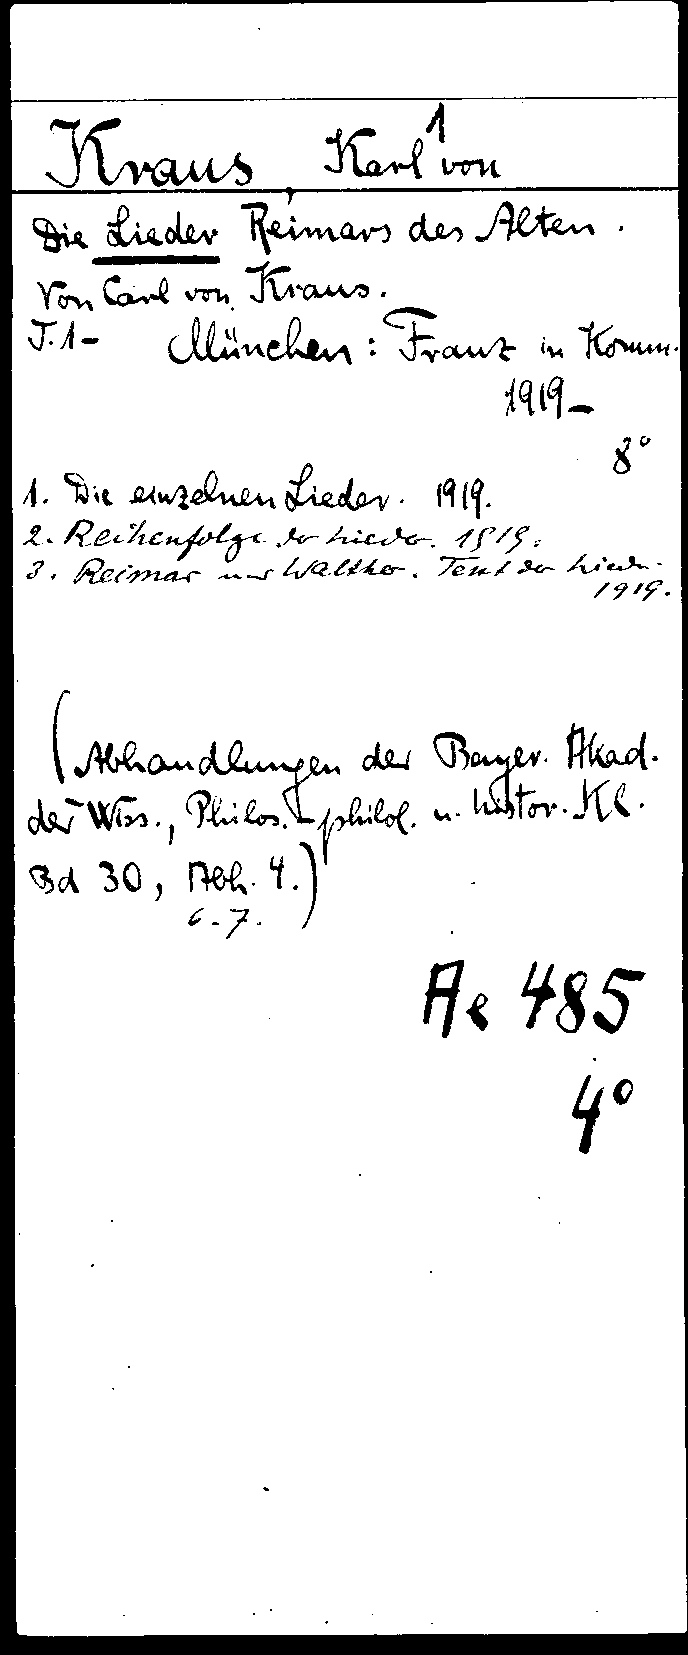 1
Kraus, Karl von
Die Lieder Reimars des Alten.
Von Carl von Kraus.
T. 1- München: Franz in Komm.
1919-
8°
1. Die einzelnen Lieder. 1919.
2. Reihenfolge der Lieder. 1919.
3. Reimar und Walther. Text der Lieder.
1919.
(Abhandlungen der Bayer. Akad.
der Wiss., Philos.-philol. u. histor. Kl.
Bd 30, Abh. 4.)
6. 7.
Ae 485
4°